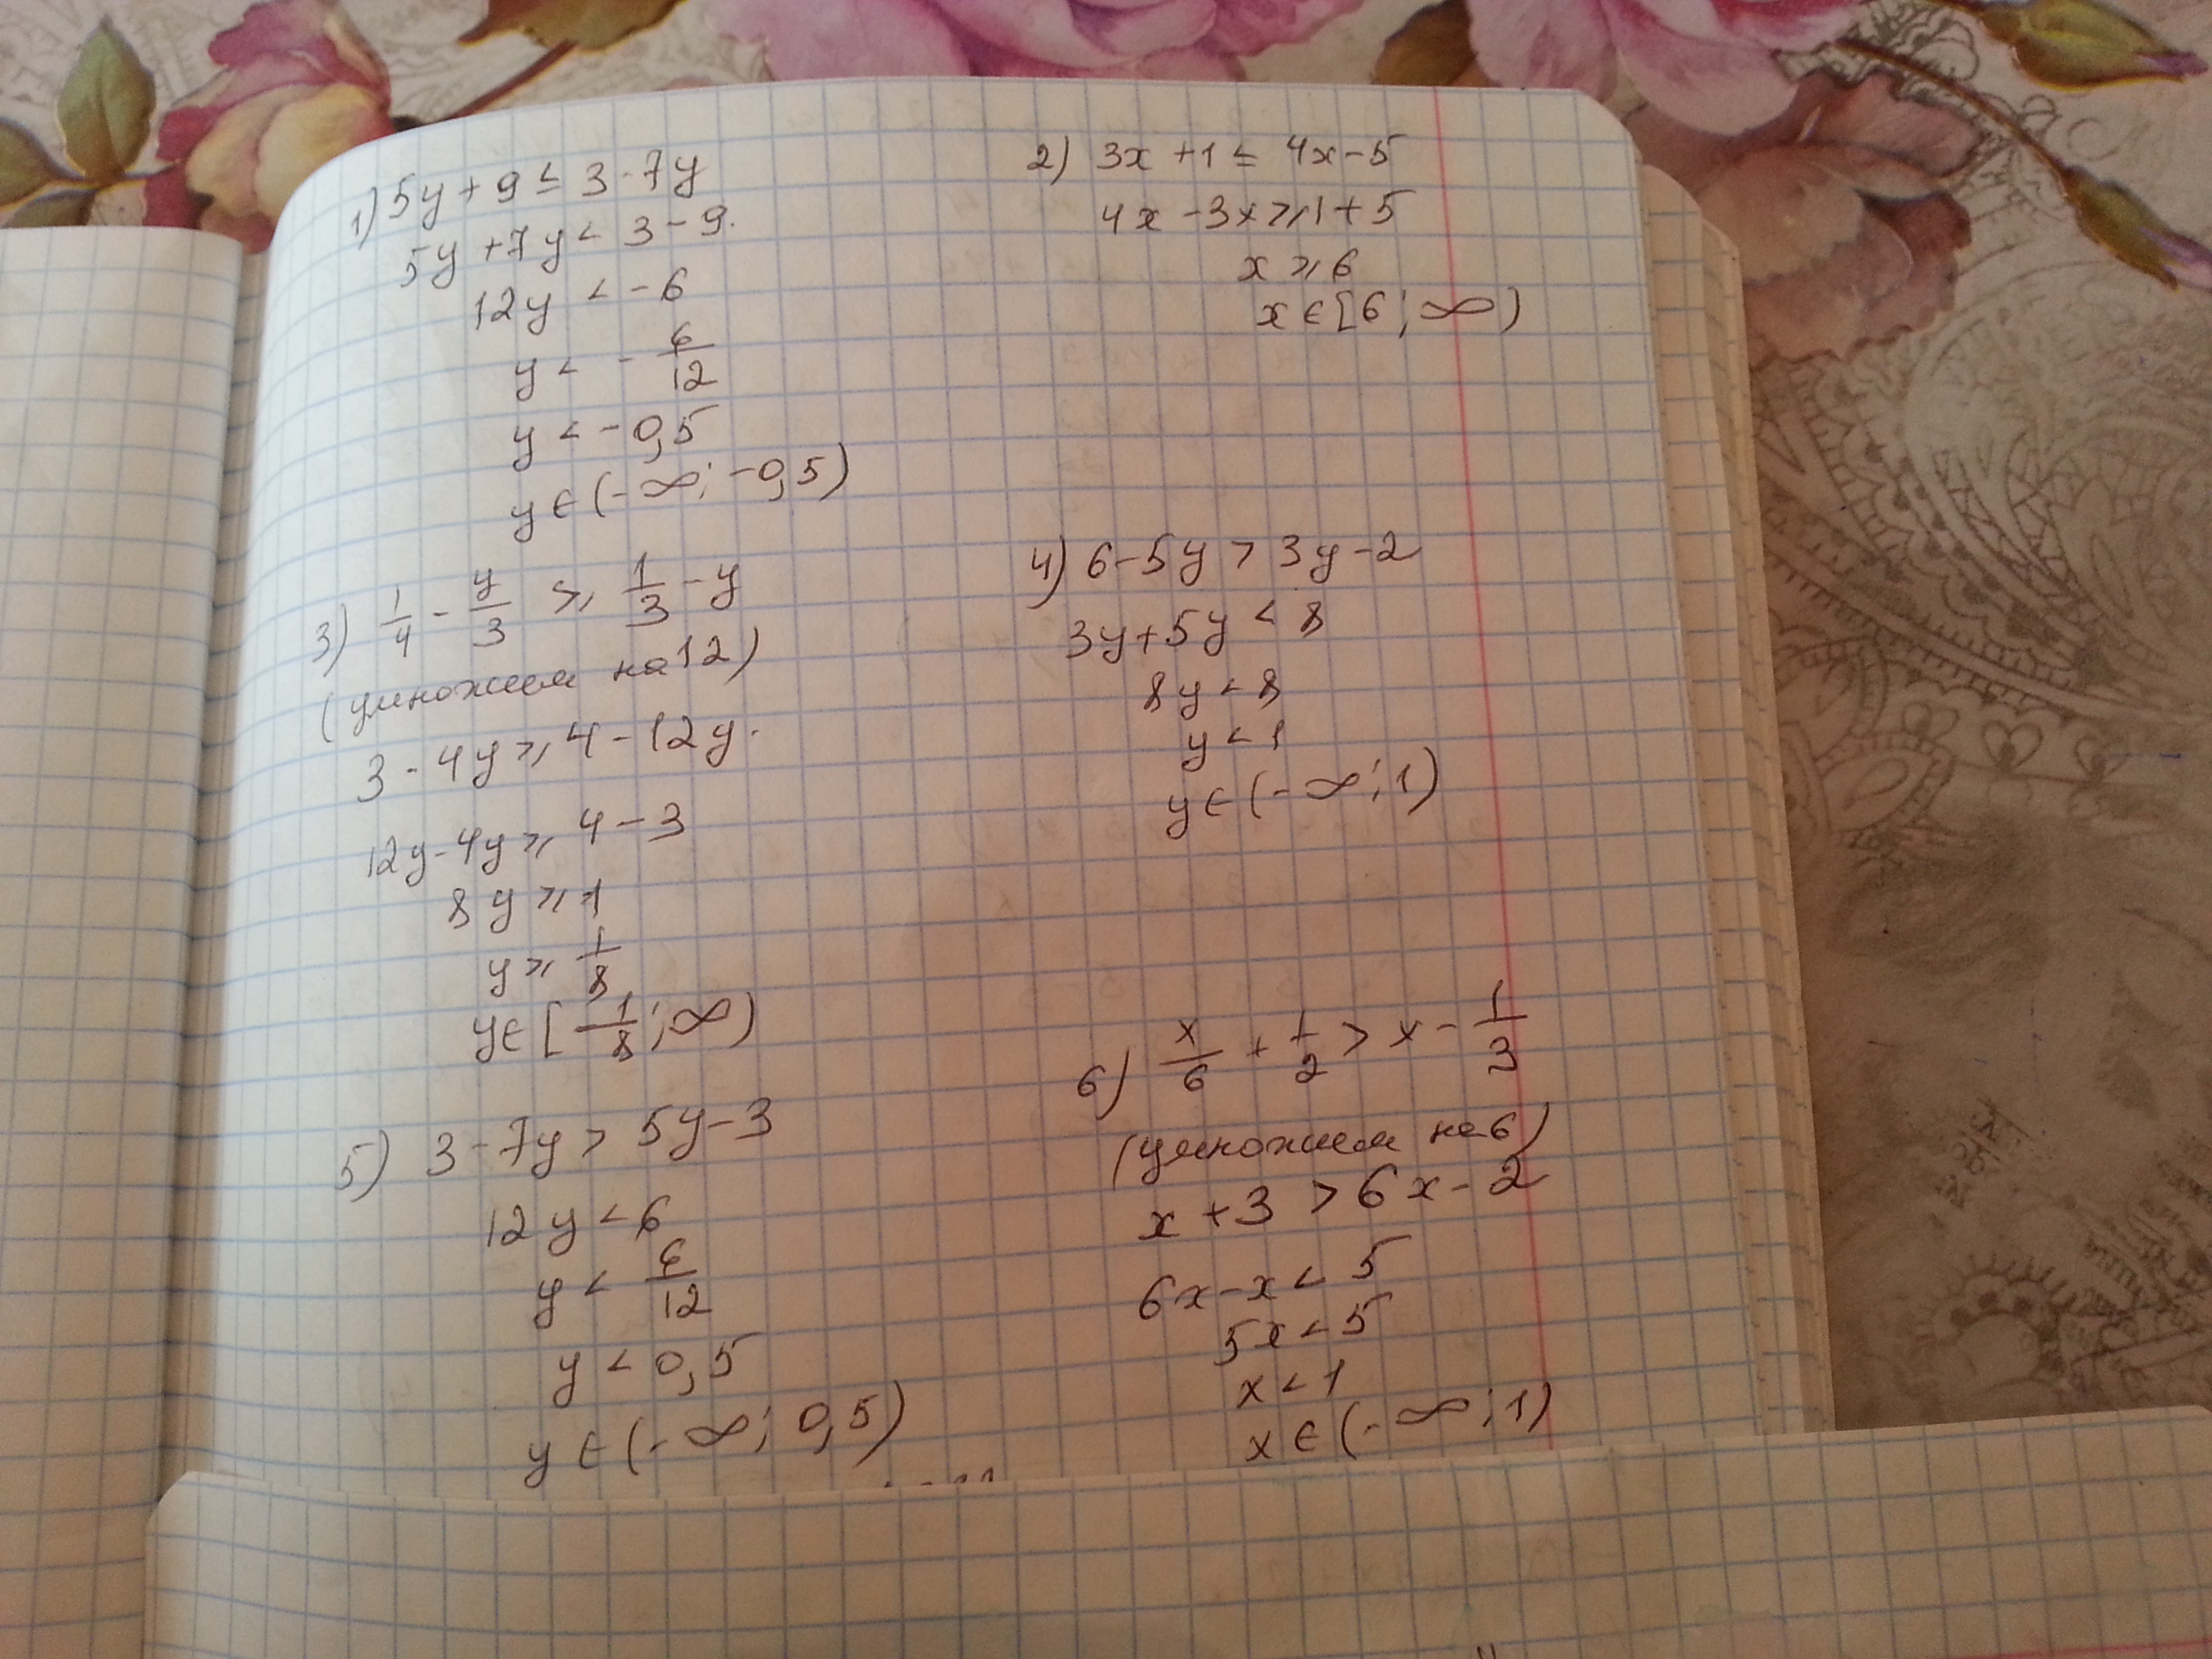 1) 5y + 9 ≤ 3 - 7y
5y + 7y < 3 - 9.
12y < -6
y < - 6/12
y < -0,5
y ∈ (-∞; -0,5)
2) 3x + 1 ≤ 4x - 5
4x - 3x ⩾ 1 + 5
x ⩾ 6
x ∈ [6; ∞)
3) 1/4 - y/3 ⩾ 1/3 - y
(умножим на 12)
3 - 4y ⩾ 4 - 12y.
12y - 4y ⩾ 4 - 3
8y ⩾ 1
y ⩾ 1/8
y ∈ [1/8; ∞)
4) 6 - 5y > 3y - 2
3y + 5y < 8
8y < 8
y < 1
y ∈ (-∞; 1)
5) 3 - 7y > 5y - 3
12y < 6
y < 6/12
y < 0,5
y ∈ (-∞; 0,5)
6) x/6 + 1/2 > x - 1/3
(умножим на 6)
x + 3 > 6x - 2
6x - x < 5
5x < 5
x < 1
x ∈ (-∞; 1)